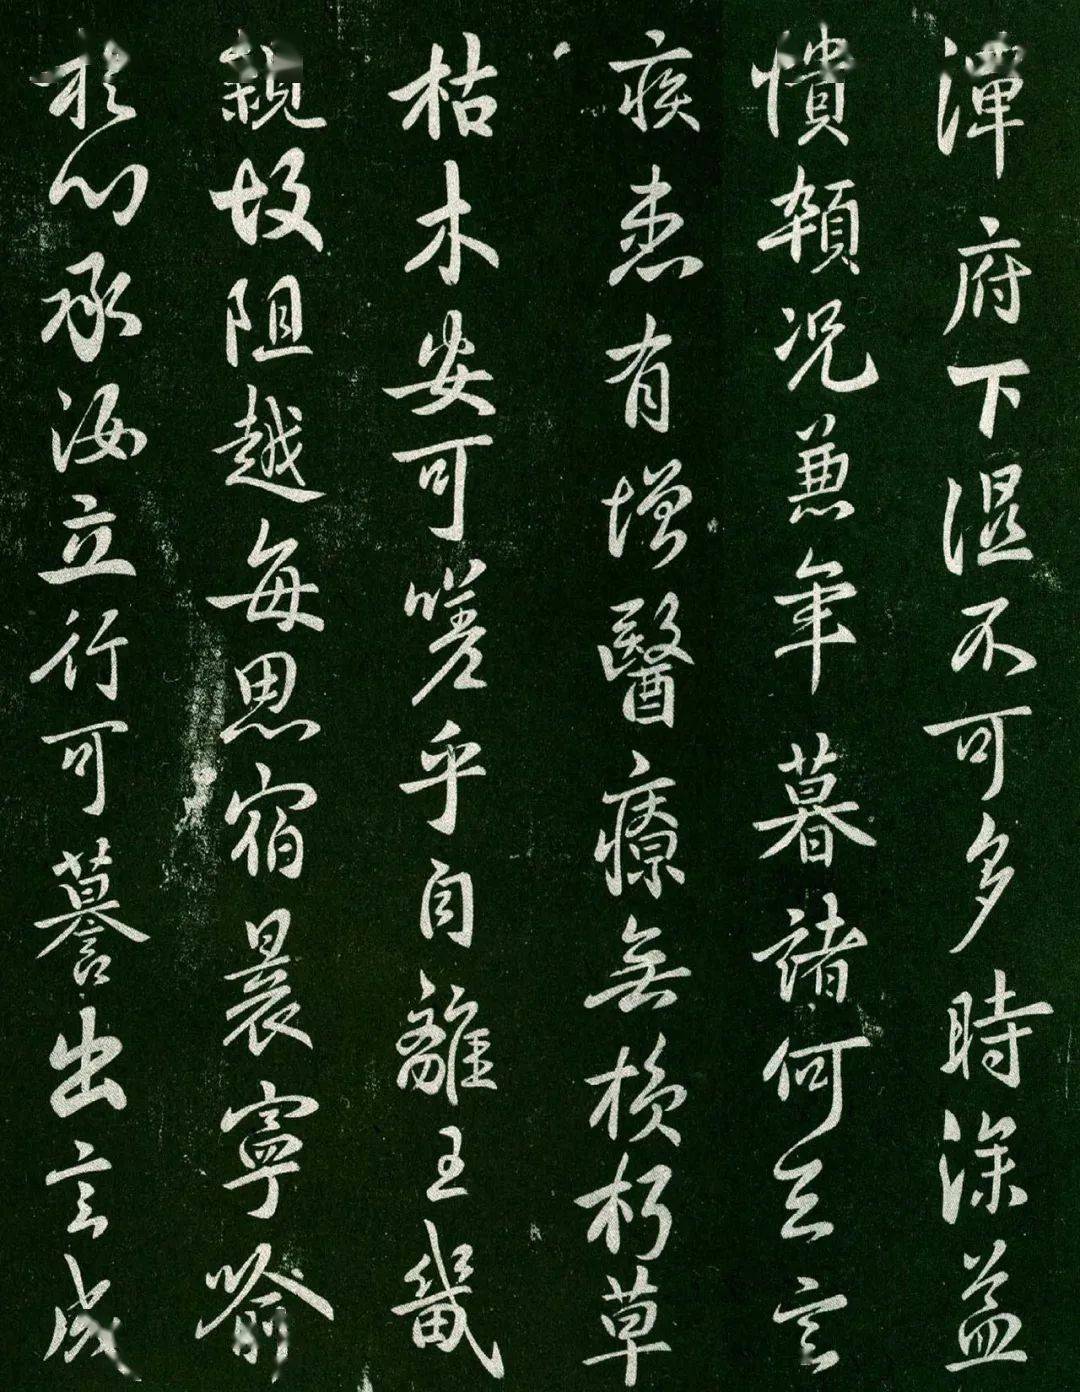 潭府下濕不可多時深益
憒顇況兼年暮諸何足言
疾患有增醫療無損朽草
枯木安可嗟乎自離王畿
親故阻越每思宿晨寧喻
於心承汝立行可譽出言成